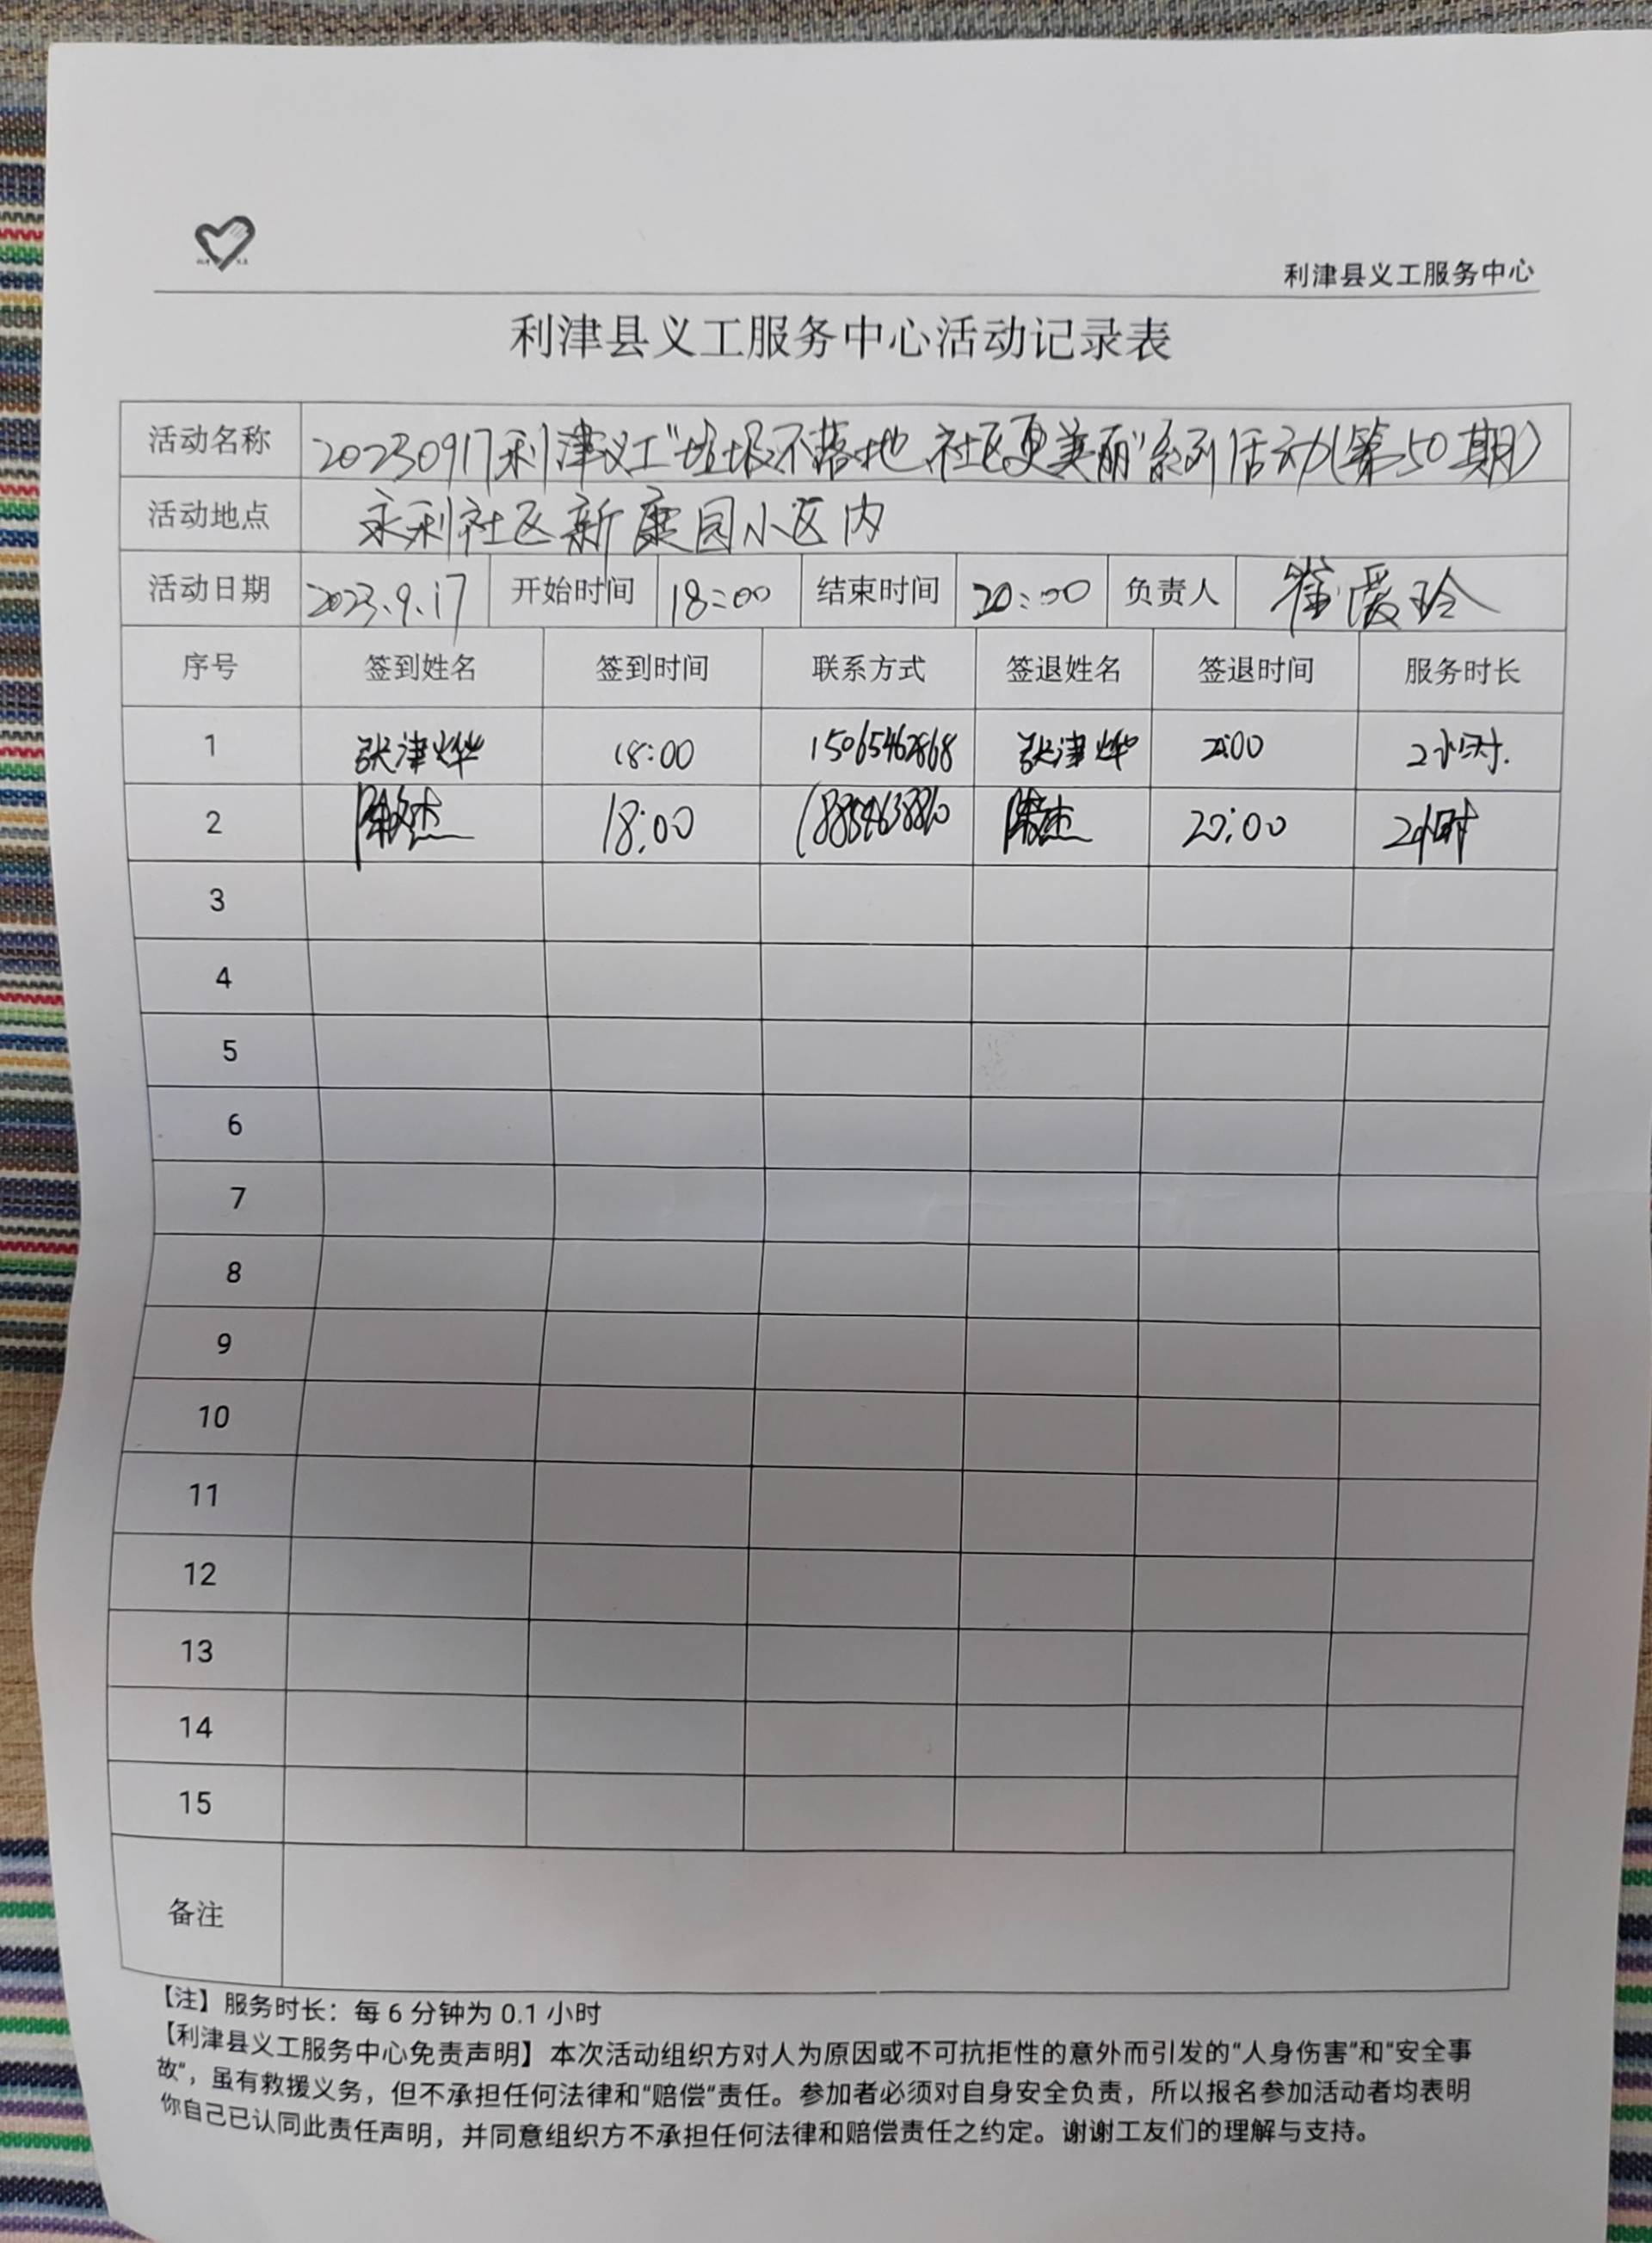 利津县义工服务中心
利津县义工服务中心活动记录表
活动名称 20230917利津义工"垃圾不落地 社区更美丽"系列活动(第50期)
活动地点 永利社区新康园小区内
活动日期 2023.9.17 开始时间 18:00 结束时间 20:00 负责人 崔爱玲
序号 签到姓名 签到时间 联系方式 签退姓名 签退时间 服务时长
1 张津烨 18:00 15065462868 张津烨 20:00 2小时.
2 18:00 20:00 2小时
3
4
5
6
7
8
9
10
11
12
13
14
15
备注
【注】服务时长：每 6 分钟为 0.1 小时
【利津县义工服务中心免责声明】本次活动组织方对人为原因或不可抗拒性的意外而引发的“人身伤害”和“安全事
故”，虽有救援义务，但不承担任何法律和“赔偿“责任。参加者必须对自身安全负责，所以报名参加活动者均表明
你自己已认同此责任声明，并同意组织方不承担任何法律和赔偿责任之约定。谢谢工友们的理解与支持。